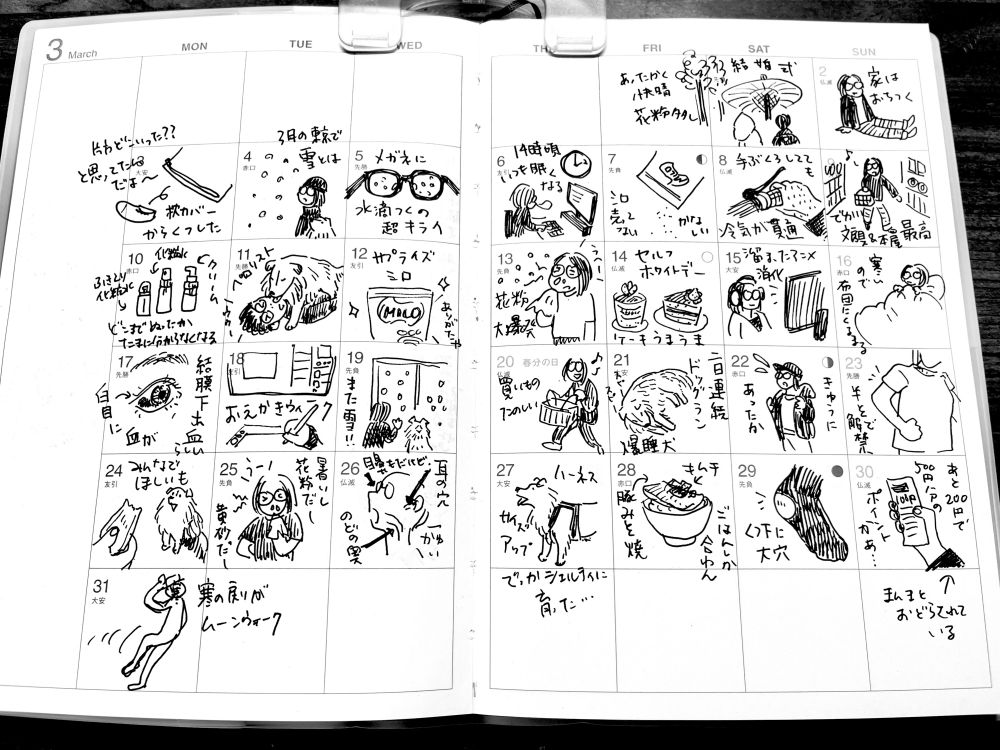 3 March
MON
TUE
WED
THU
FRI
SAT
SUN
あったかく
快晴
花粉タタし
結婚式
2
仏滅
家は
おちつく
片われどこいった??
と思ってたら
だよ〜
大安
枕カバー
からくつした
4
赤口
3月の東京で
雪とは
5
先勝
メガネに
水滴つくの
超キライ
6
友引
14時頃
いつも眠く
なる
7
先負
ミロ
売って
ない
かな
しい
8
仏滅
手ぶくろしてても
冷気が貫通
9
でかい
文具&本屋最高
10
赤口
化粧水
クリーム
どこまでぬったか
たまに分からなくなる
11
先勝
12
友引
サプライズ
ミロ
MILO
ありがたや
13
先負
うぅー
花粉
大爆発
14
仏滅
セルフ
ホワイトデー
ケーキうまうま
15
大安
溜まったアニメ
消化
16
赤口
寒い
ので
布団にくるまる
17
先勝
結膜下出血らしい
白目に
血が
18
友引
おえかきウィーク
19
先負
また雪!!
20
春分の日
仏滅
買いもの
たのしい
21
大安
二日連続
ドッグラン
爆睡犬
22
赤口
きゅうに
あったか
23
先勝
半そで解禁
24
友引
みんなで
ほしいも
25
先負
うー
暑いし
花粉だし
黄砂だし
26
仏滅
目鼻もだけど
耳の穴
かゆい
のどの奥
27
大安
ハーネス
サイズ
アップ
でっかシェルティに
育った…
28
赤口
キムチ
豚みそ焼
ごはんが
29
先負
くつ下に
大穴
30
仏滅
あと200円で
500円/1Pの
ポイント
かぁ…
まんまと
おどらされて
いる
31
大安
寒の戻りが
ムーンウォーク